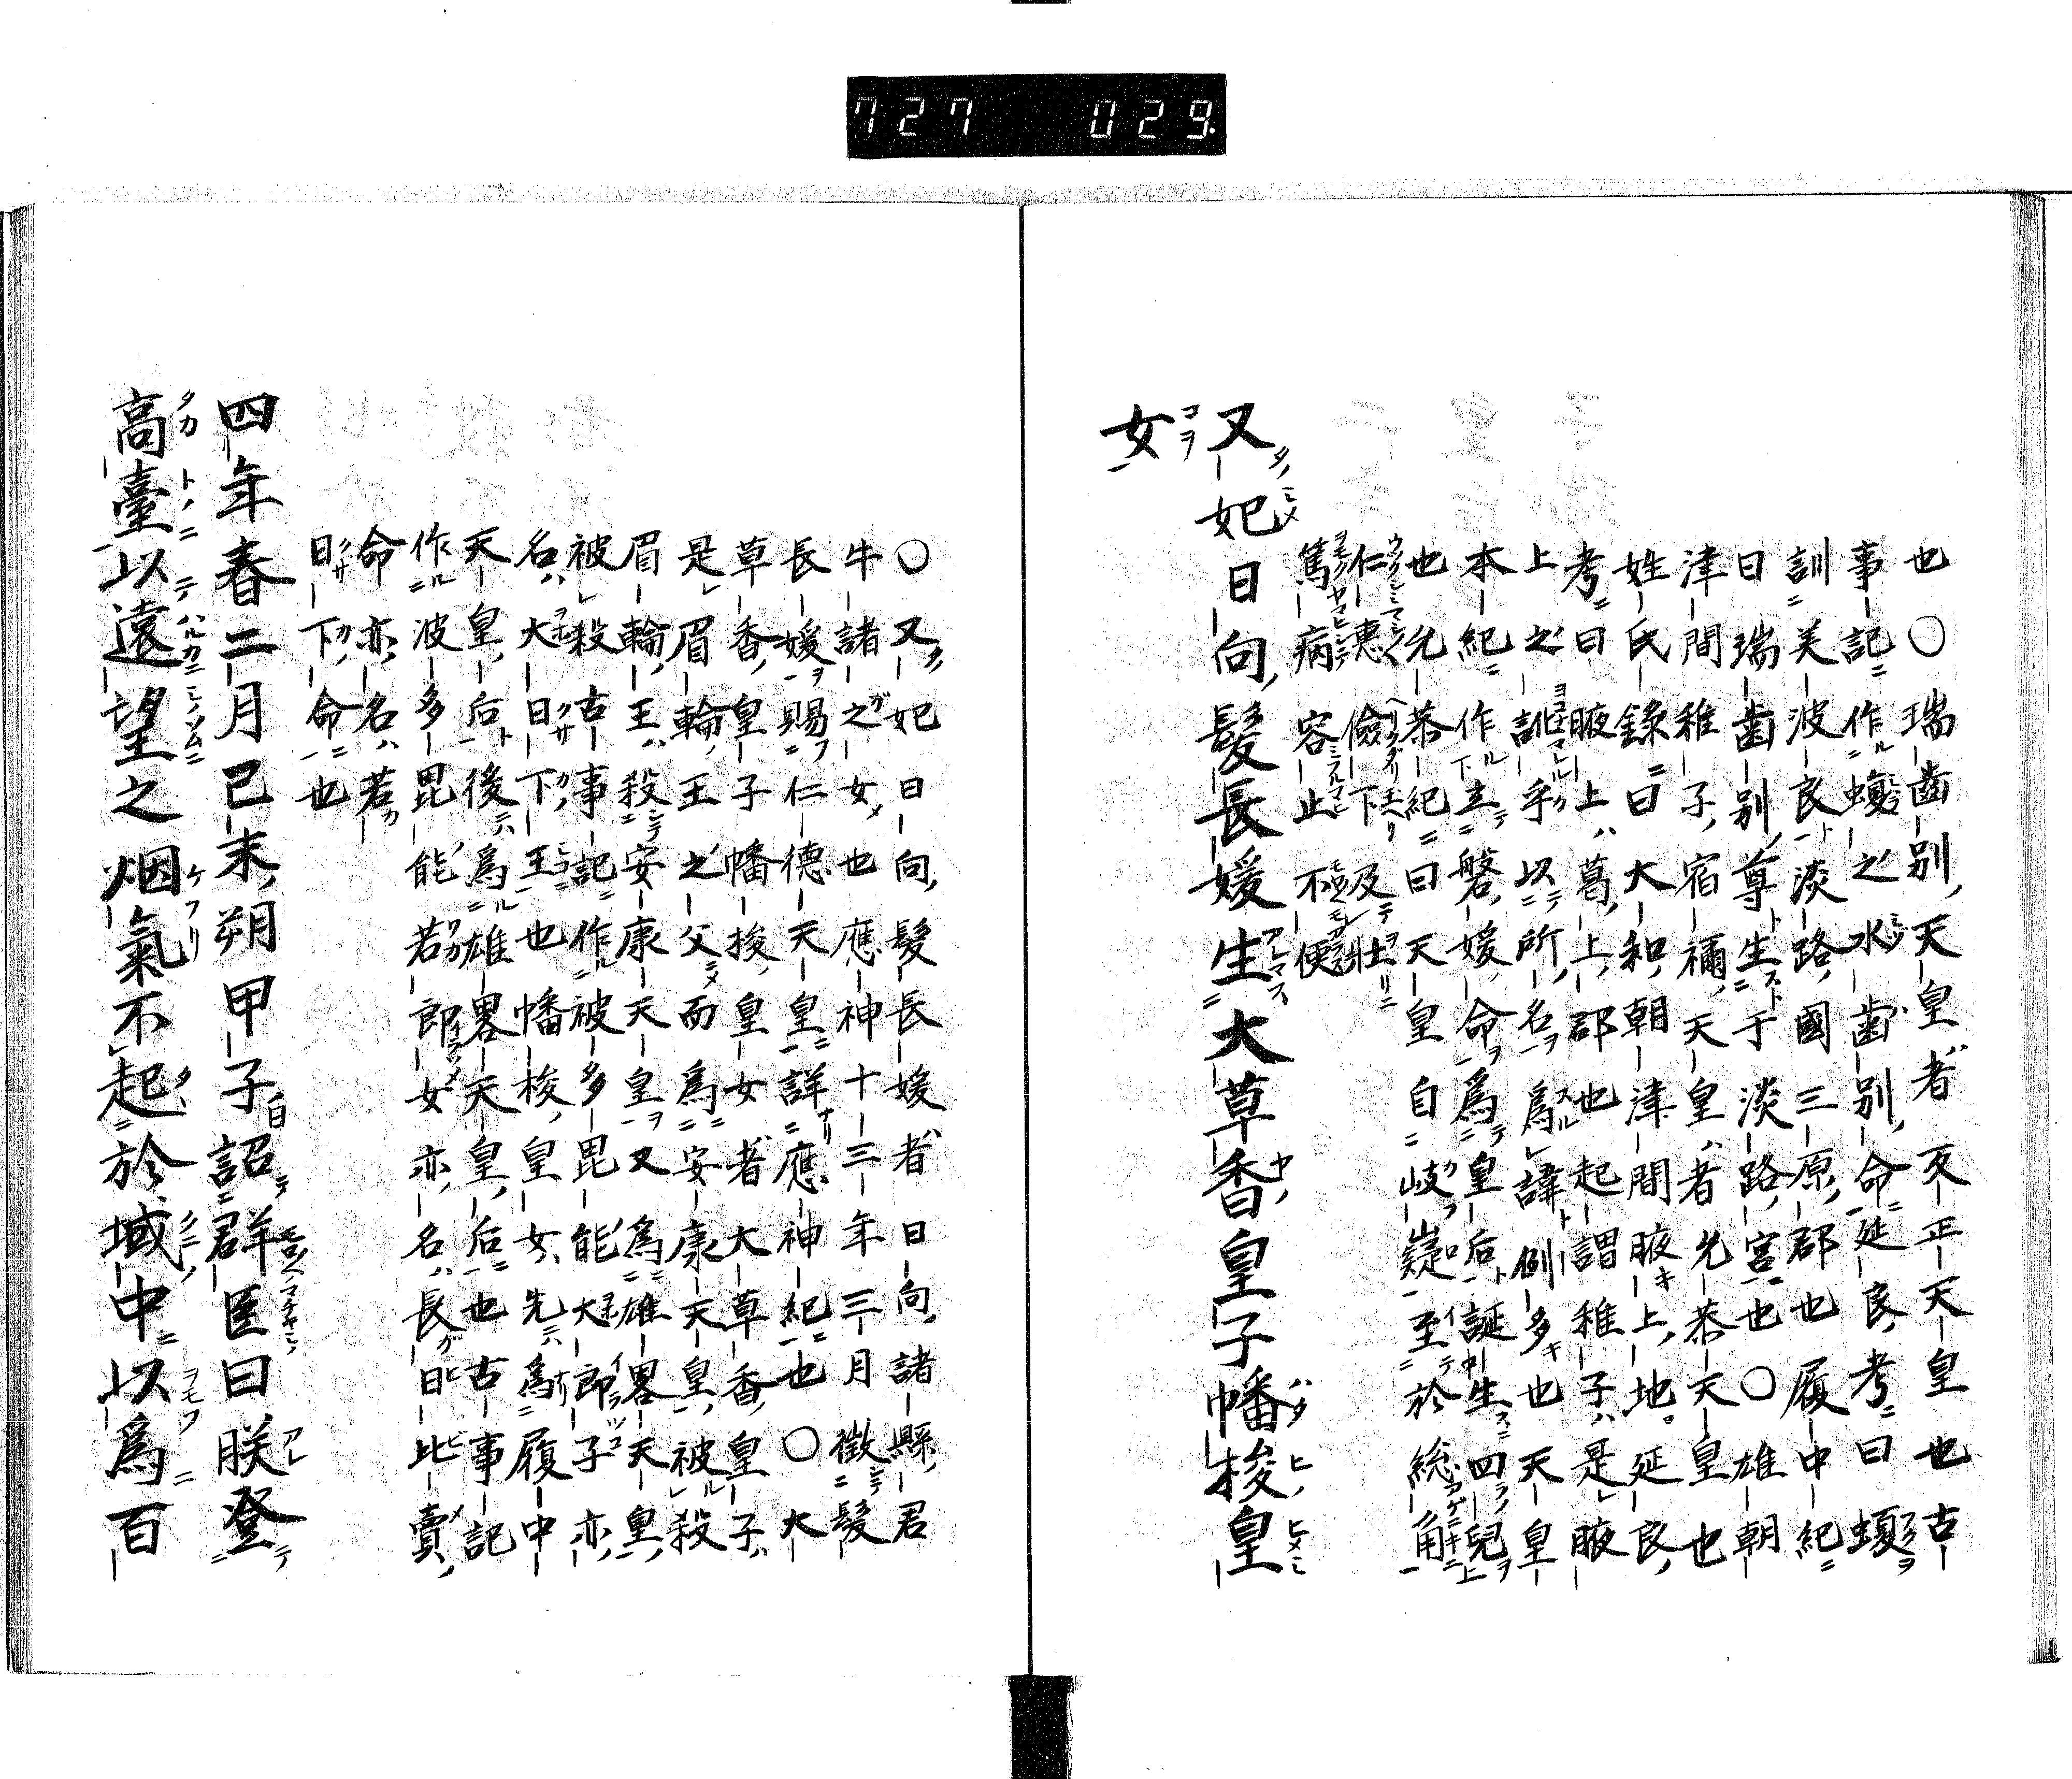 727 029.
也〇瑞齒別天皇者反正天皇也古
事記作蝮之水齒別命延良考曰蝮
訓美波良淡路國三原郡也履中紀
曰瑞齒別尊生于淡路宮也〇雄朝
津間稚子宿禰天皇者允恭天皇也
姓氏錄曰大和朝津間腋上地延良
考曰腋上葛上郡也起謂稚子是腋
上之訛乎以所名爲諱例多也天皇
本紀作立磐媛命爲皇后誕生四兒
也允恭紀曰天皇自岐嶷至於総角
仁惠儉下及壯
篤病容止不便
又妃日向髮長媛生大草香皇子幡梭皇
女
〇又妃日向髮長媛者日向諸縣君
牛諸之女也應神十三年三月徵髮
長媛賜仁德天皇詳應神紀也〇大
草香皇子幡梭皇女者大草香皇子
是眉輪王之父而爲安康天皇被殺
眉輪王殺安康天皇又爲雄畧天皇
被殺古事記作被多毘能大郎子亦
名大日下王也幡梭皇女先爲履中
天皇后後爲雄畧天皇后也古事記
作波多毘能若郎女亦名長日比賣
命亦名若
日下命也
四年春二月己未朔甲子詔群臣曰朕登
高臺以遠望之烟氣不起於域中以爲百